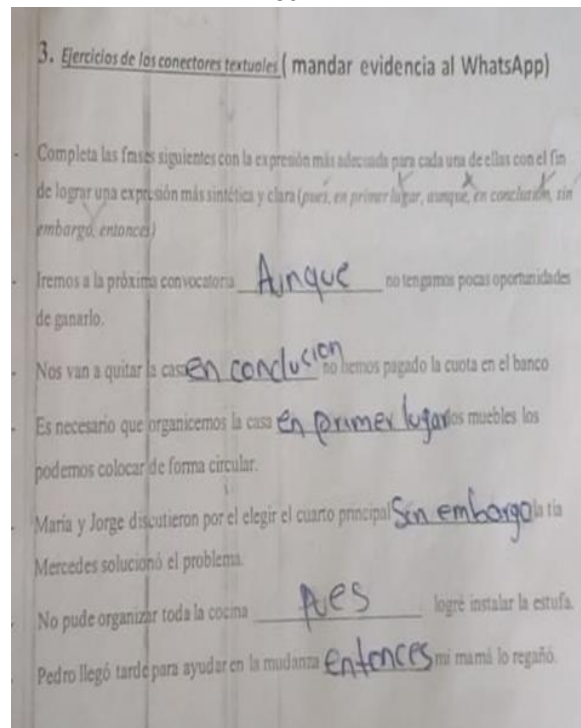 3. Ejercicios de los conectores textuales ( mandar evidencia al WhatsApp)
- Completa las frases siguientes con la expresión más adecuada para cada una de ellas con el fin
de lograr una expresión más sintética y clara (pues, en primer lugar, aunque, en conclusión, sin
embargo, entonces)
- Iremos a la próxima convocatoria Aunque no tengamos pocas oportunidades
de ganarlo.
- Nos van a quitar la casa en conclusion no hemos pagado la cuota en el banco
- Es necesario que organicemos la casa en primer lugar los muebles los
podemos colocar de forma circular.
- María y Jorge discutieron por el elegir el cuarto principal Sin embargo la tía
Mercedes solucionó el problema.
- No pude organizar toda la cocina Pues logré instalar la estufa.
- Pedro llegó tarde para ayudar en la mudanza entonces mi mamá lo regañó.